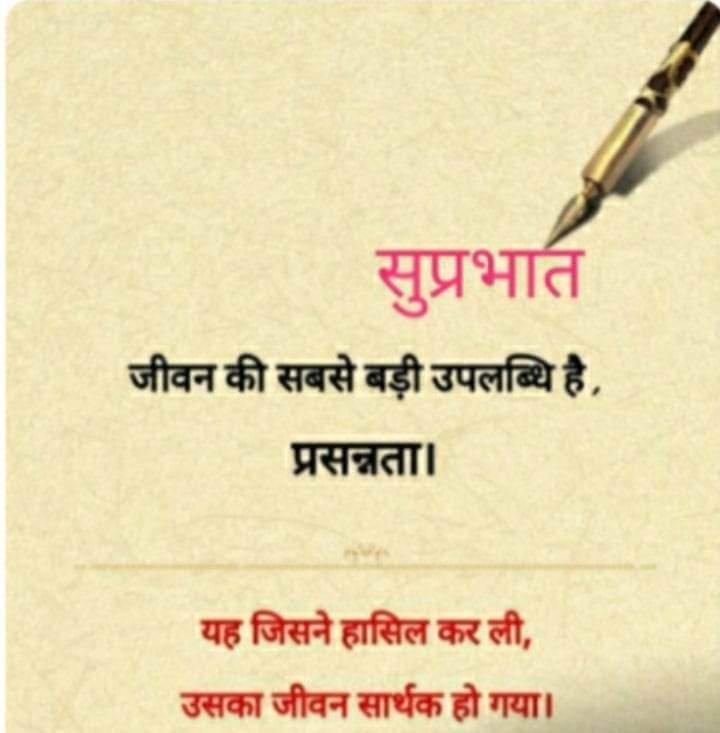 सुप्रभात
जीवन की सबसे बड़ी उपलब्धि है,
प्रसन्नता।
यह जिसने हासिल कर ली,
उसका जीवन सार्थक हो गया।